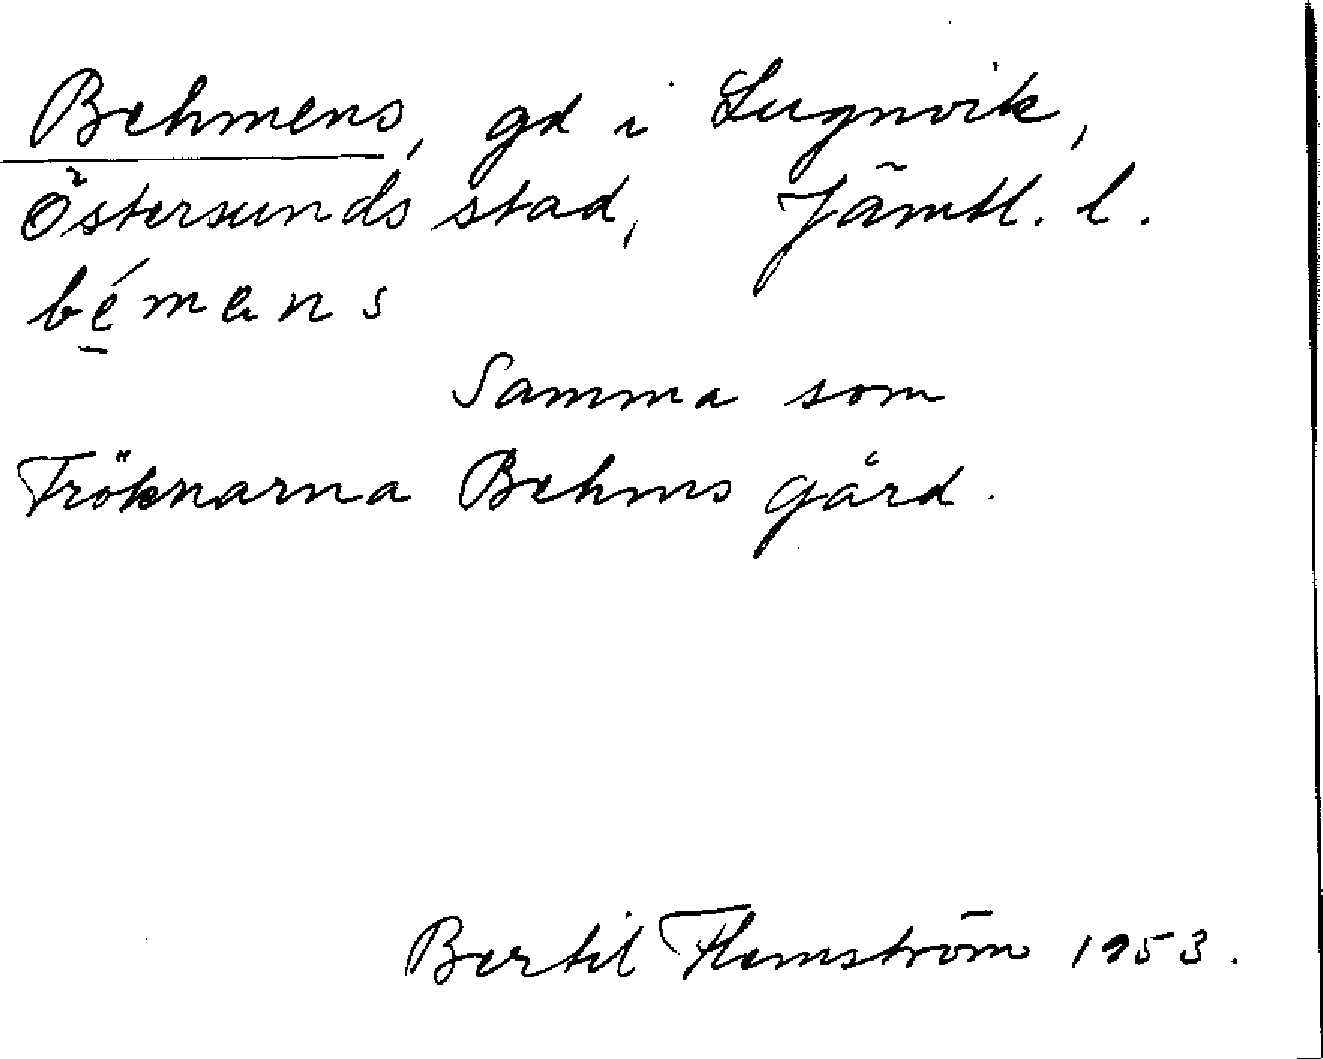 Behmens, gd i Lugnvik,
Östersunds stad, Jämtl. l.
bémens
Samma som
Fröknarna Behms gård.
Bertil Flemström 1953.